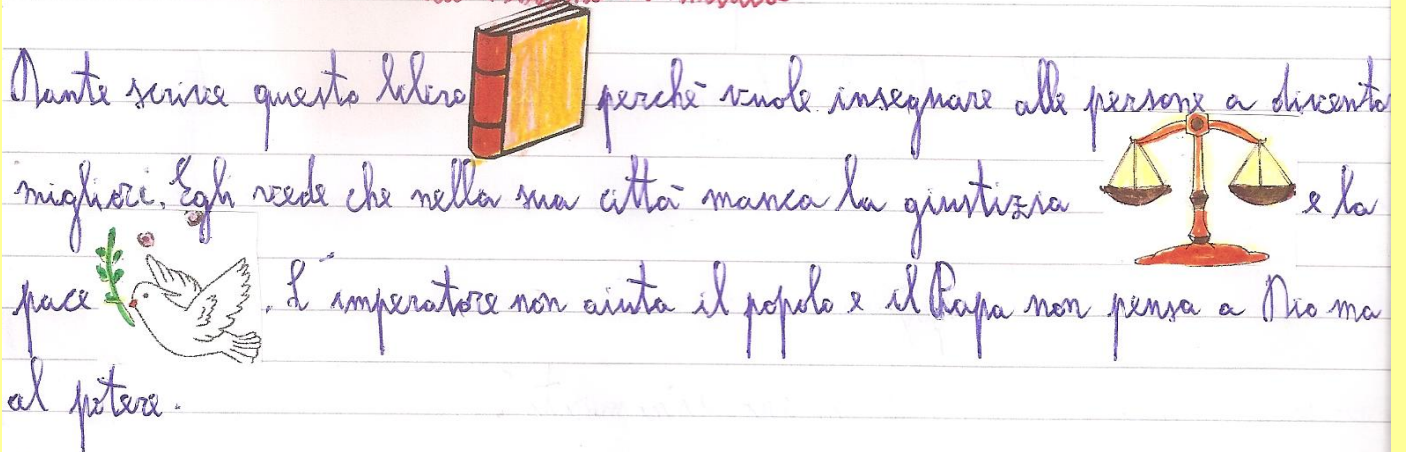 Dante scrive questo libro perchè vuole insegnare alle persone a diventa
migliori. Egli vede che nella sua città manca la giustizia e la
pace. L'imperatore non aiuta il popolo e il Papa non pensa a Dio ma
al potere.